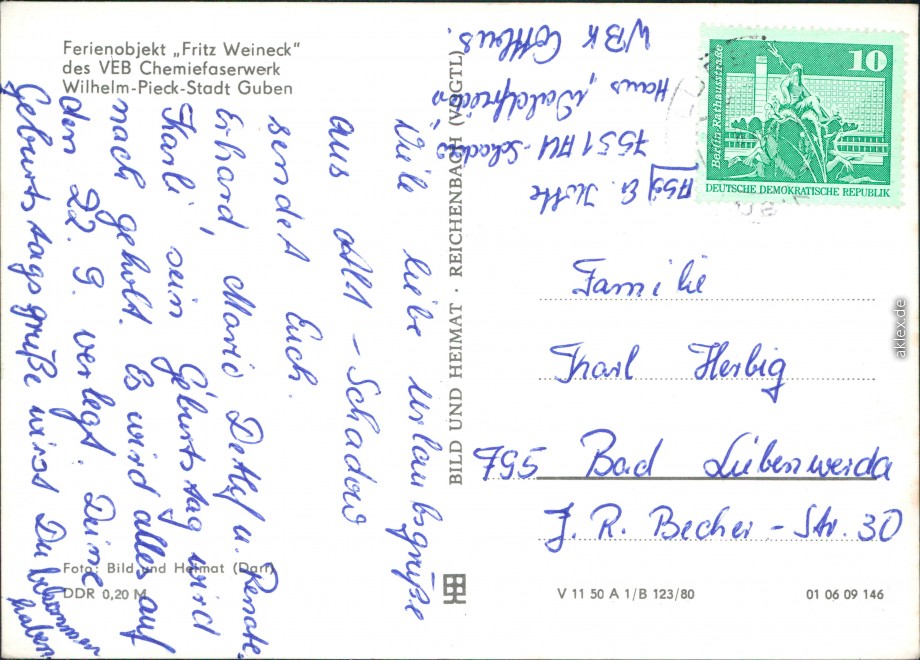 Ferienobjekt „Fritz Weineck"
des VEB Chemiefaserwerk
Wilhelm-Pieck-Stadt Guben
Viele liebe Urlaubsgrüße
aus Alt-Schadow
sendet Euch.
Erhard, Mario Detlef u. Renate.
Karli sein Geburtstag wird
nach geholt. Es wird alles auf
den 22. 9. verlegt. Deine
Geburtstagsgrüße wirst Du bekommen
haben.
Foto: Bild und Heimat (Darr)
DDR 0,20 M
BILD UND HEIMAT · REICHENBACH (VOGTL)
E.
7551 Alt-Schadow
Haus „Waldfrieden"
WBK Cottbus.
10
Berlin, Rathausstraße
DEUTSCHE DEMOKRATISCHE REPUBLIK
Familie
Karl Herbig
795 Bad Liebenwerda
J. R. Becher-Str. 30
V 11 50 A 1/B 123/80
01 06 09 146
aklex.de